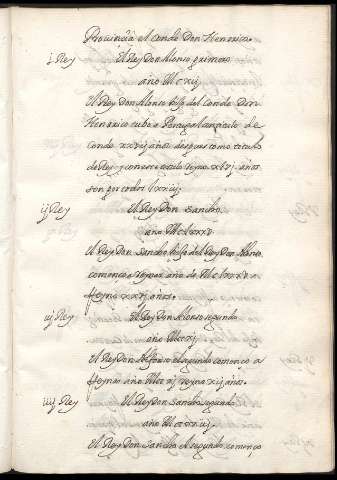 Provincia el Conde Don Henrrico.
j Rey El Rey Don Alonso primero
año Mcxij
El Rey Don Alonso hijo del Conde Don
Henrrico tubo a Portugal en titulo de
Conde xxvij años despues como titulo
de Rey y con este titulo reyno xlvj años
son por todos lxxiij
ij Rey El Rey Don Sancho
año Mclxxxv
El Rey Don Sancho hijo del Rey Don Alonso
començo a reynar año de Mclxxxv
Reyno xxvj años.
iij Rey El Rey Don Alonso segundo
año Mccxj
El Rey Don Alonso el segundo començo a
Reynar año Mccxj reyno xij años.
iiij Rey El Rey Don Sancho segundo
año Mccxxiij
El Rey Don Sancho el segundo començo